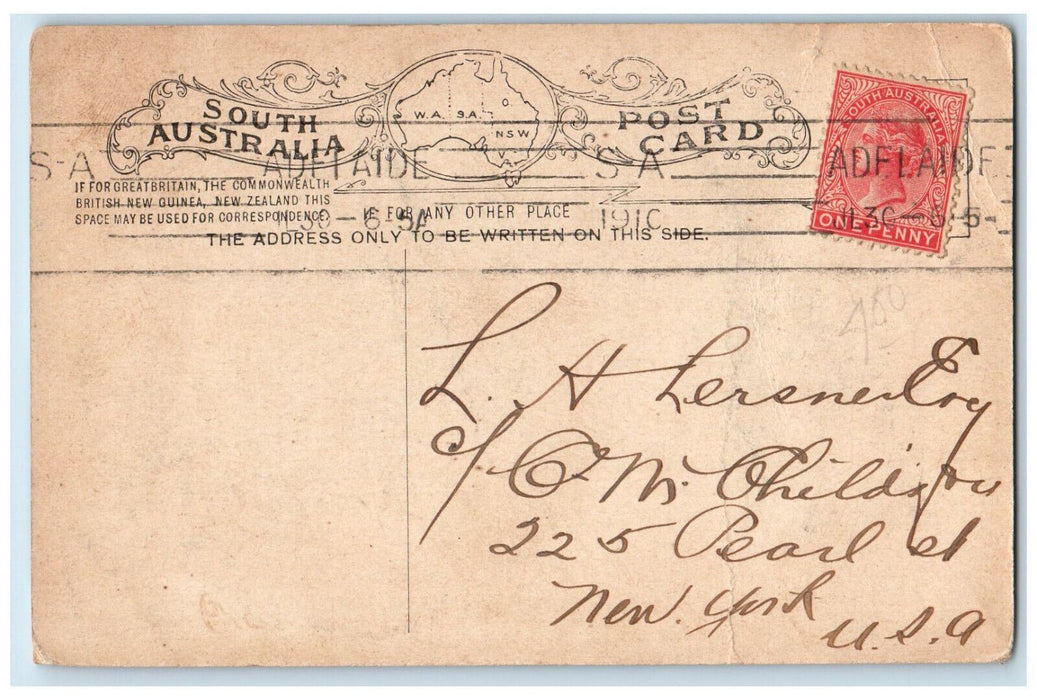 SOUTH AUSTRALIA
POST CARD
W.A. S.A. Q NSW V
SOUTH AUSTRALIA
ONE PENNY
S-A ADELAIDE S A ADELAIDE
IF FOR GREAT BRITAIN, THE COMMONWEALTH
BRITISH NEW GUINEA, NEW ZEALAND THIS
SPACE MAY BE USED FOR CORRESPONDENCE
IF FOR ANY OTHER PLACE
THE ADDRESS ONLY TO BE WRITTEN ON THIS SIDE.
30 - 6 5A 191C 30 - 6 5-
L. H Lersner Esq
c/ C. M. Childs &
225 Pearl st
New. York
U.S.A